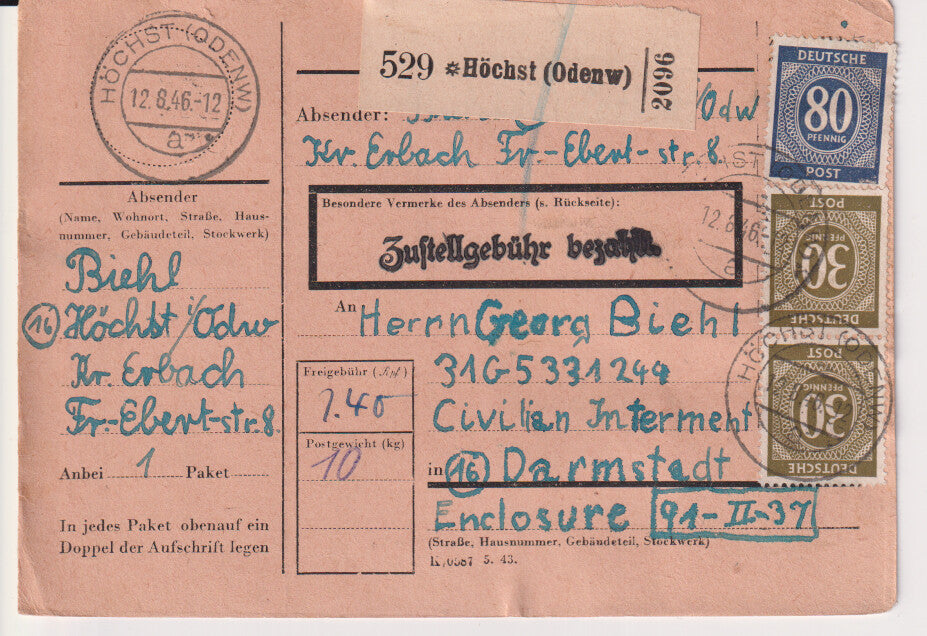 HÖCHST (ODENW)
12.8.46.-12
a
529 *Höchst (Odenw)
2096
DEUTSCHE
80
PFENNIG
POST
Absender: i/Odw
Kr. Erbach Fr-Ebert-str. 8.
Absender
(Name, Wohnort, Straße, Haus-
nummer, Gebäudeteil, Stockwerk)
Biehl
(16) Höchst i/Odw
Kr. Erbach
Fr-Ebert-str. 8.
Anbei 1 Paket
In jedes Paket obenauf ein
Doppel der Aufschrift legen
Besondere Vermerke des Absenders (s. Rückseite):
Zustellgebühr bezahlt.
12.8.46.
DEUTSCHE
30
PFENNIG
POST
An Herrn Georg Biehl
31G5331244
Civilian Interment
in (16) Darmstadt
Enclosure 91-II-37
(Straße, Hausnummer, Gebäudeteil, Stockwerk)
K/0587 5. 43.
Freigebühr (Rpf)
1.40
Postgewicht (kg)
10
HÖCHST (ODENW)
POST
30
PFENNIG
DEUTSCHE